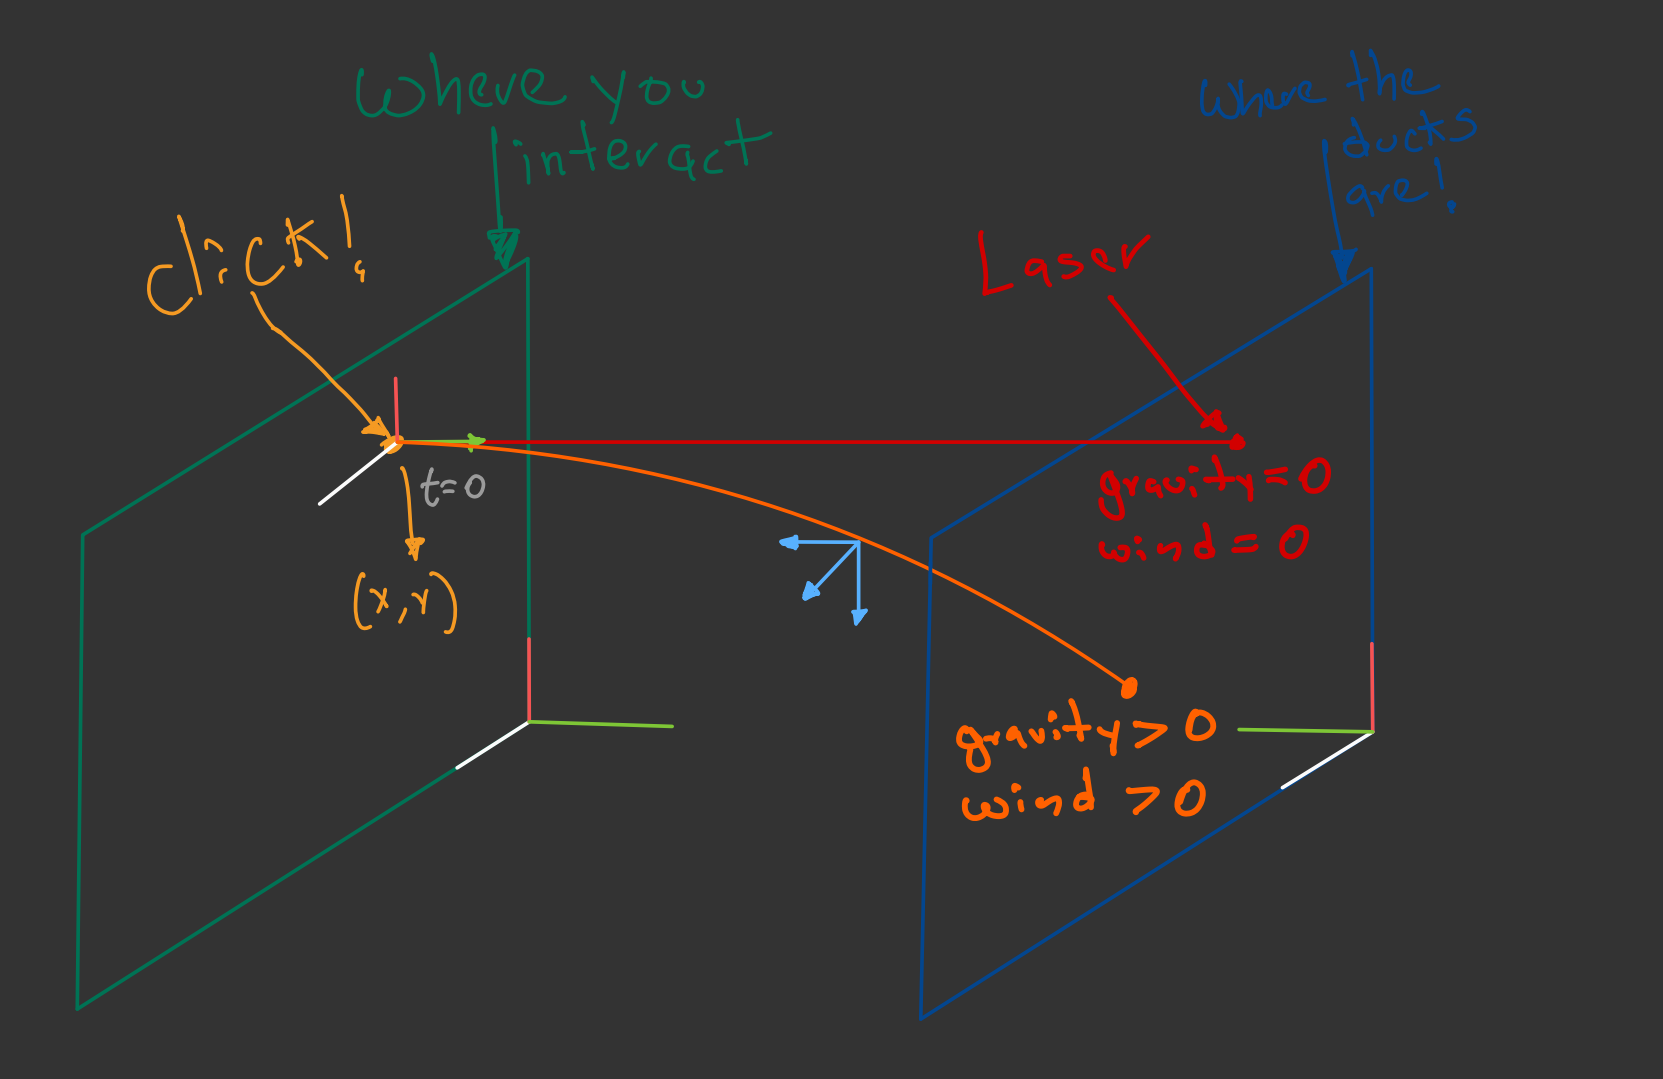 Where you
interact
Where the
ducks
are!
Click!
Laser
t=0
gravity=0
wind=0
(x,y)
gravity>0
wind >0